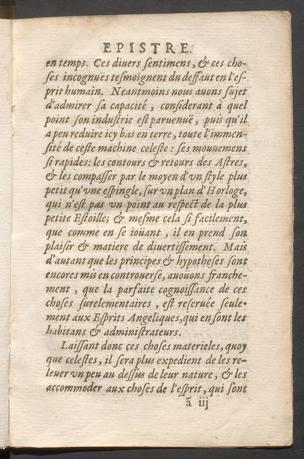 EPISTRE.
en temps. Ces divers sentimens, & ces cho-
ses incognuës tesmoignent du deffaut en l'es-
prit humain. Neantmoins nous auons sujet
d'admirer sa capacité, considerant à quel
point son industrie est paruenuë, puis qu'il
a peu reduire icy bas en terre, toute l'immen-
sité de ceste machine celeste : ses mouuemens
si rapides; les contours & retours des Astres,
& les compasser par le moyen d'vn style plus
petit qu'vne espingle, sur vn plan d'Horloge,
qui n'est pas vn point au respect de la plus
petite Estoille; & mesme cela si facilement,
que comme en se ioüant, il en prend son
plaisir & matiere de divertissement. Mais
d'autant que les principes & hypotheses sont
encores mis en controuerse, auoüons franche-
ment, que la parfaite cognoissance de ces
choses surelementaires, est reseruée seule-
ment aux Esprits Angeliques, qui en sont les
habitans & administrateurs.
Laissant donc ces choses materieles, quoy
que celestes, il sera plus expedient de les re-
leuer vn peu au dessus de leur nature, & les
accommoder aux choses de l'esprit, qui sont
ã iij